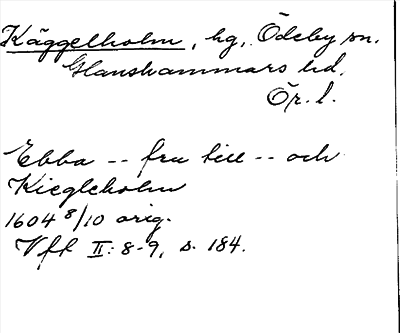 Käggelholm, hg, Ödeby sn.
Glanshammars hd.
Ör. l.
Ebba -- fru till -- och
Kiegleholm
1604 8/10 orig.
Vfl II: 8-9, s. 184.